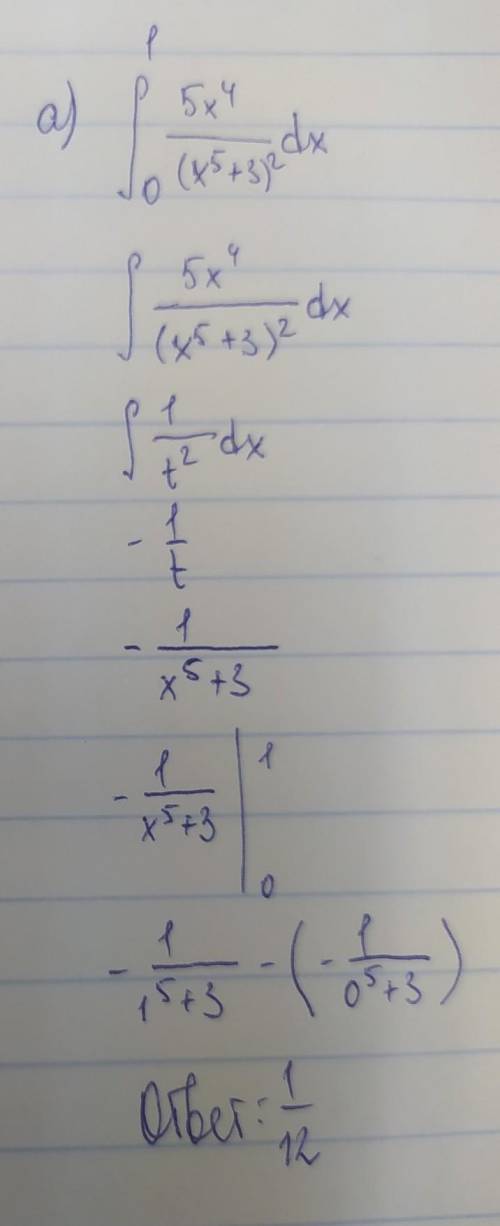 а) ∫₀¹ 5x⁴/(x⁵+3)² dx
∫ 5x⁴/(x⁵+3)² dx
∫ 1/t² dx
- 1/t
- 1/(x⁵+3)
- 1/(x⁵+3) |₀¹
- 1/(1⁵+3) - (- 1/(0⁵+3))
Ответ: 1/12